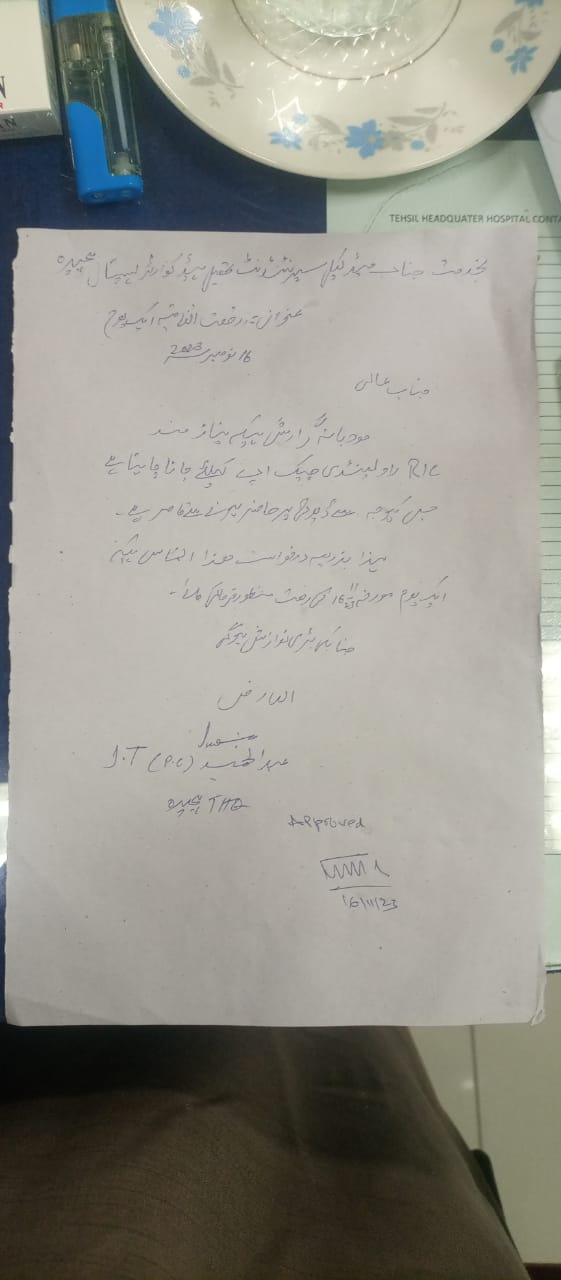 N
R
AN
TEHSIL HEADQUATER HOSPITAL CONTA
بخدمت جناب میڈیکل سپرنٹنڈنٹ تحصیل ہیڈ کوارٹر ہسپتال
عنوان:۔ رخصت اتفاقیہ ایک یوم
16 نومبر 2023
جناب عالی
مودبانہ گزارش ہیکہ نیاز مند
RIC راولپنڈی چیک اپ کیلئے جانا چاہتا ہے
جس کیوجہ سے ڈیوٹی پر حاضر ہونے سے قاصر ہے۔
لہذا بذریعہ درخواست ھذا التماس ہیکہ
ایک یوم مورخہ 16/11/23 کی رخصت منظور فرمائی جائے۔
جناب کی بڑی نوازش ہوگی
العارض
J.T (P.C)
THQ
Approved
16/11/23